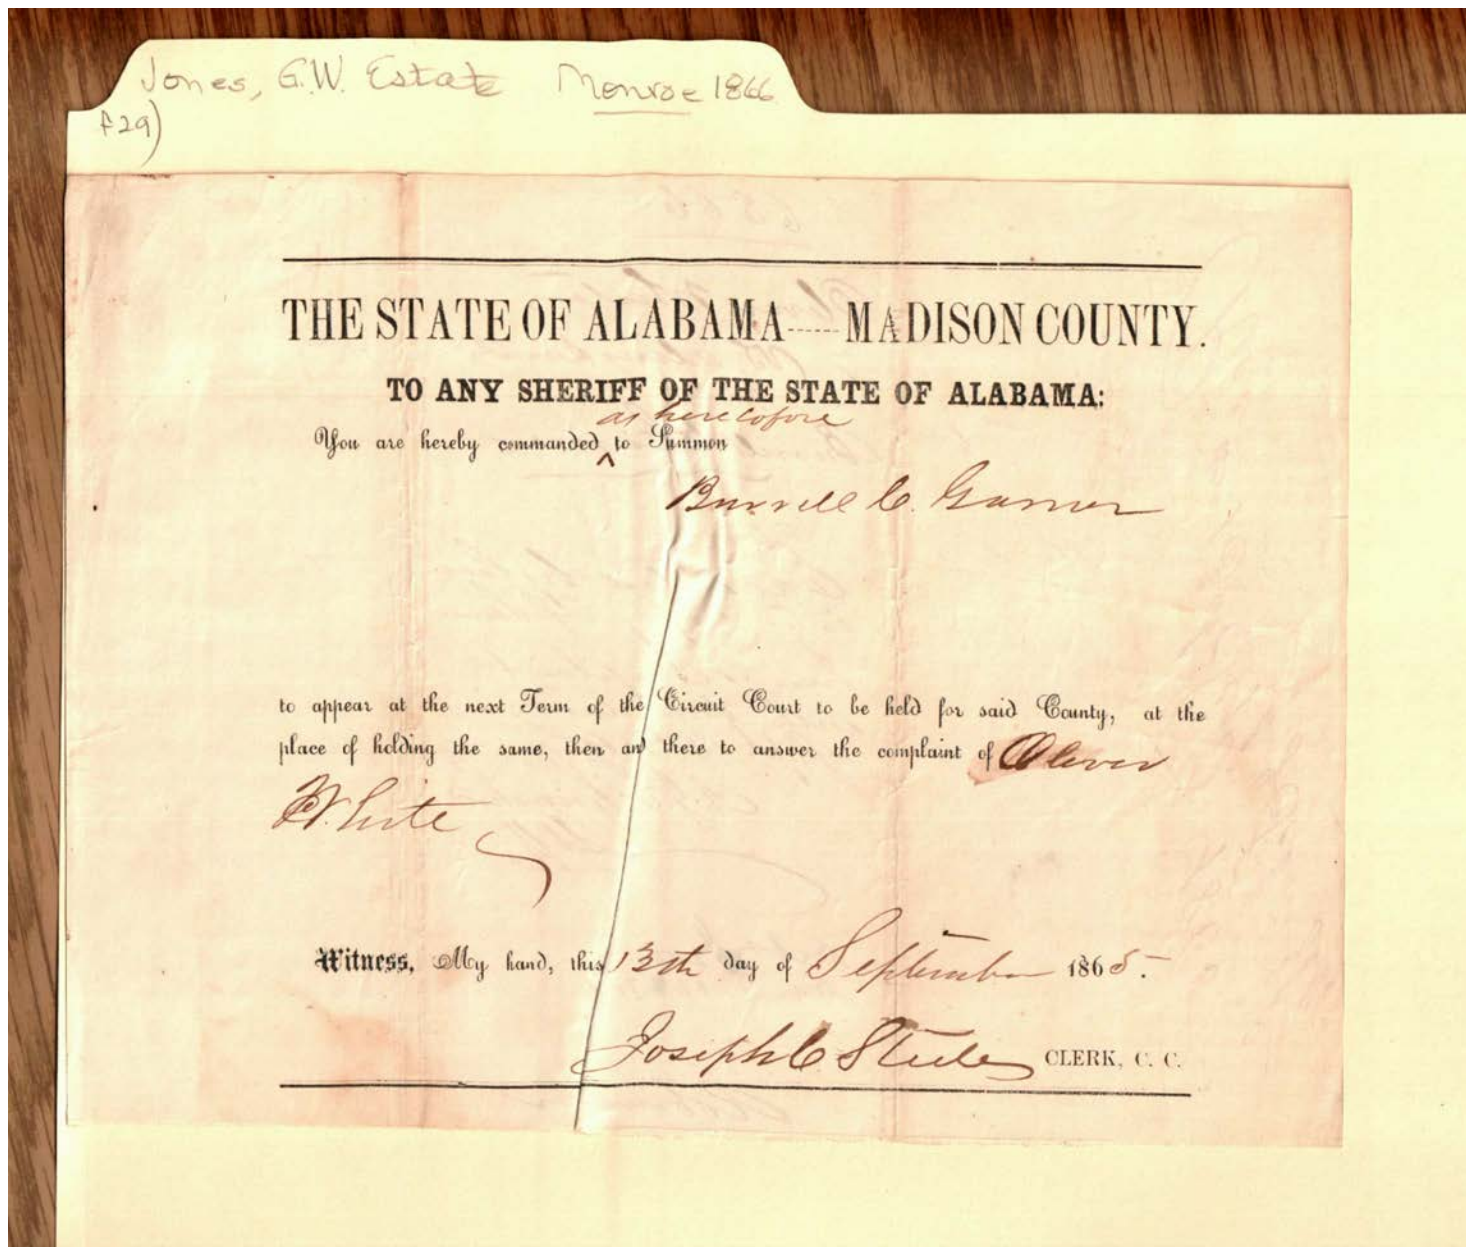 Jones, G.W. Estate Monroe 1866
f29)
THE STATE OF ALABAMA----MADISON COUNTY.
TO ANY SHERIFF OF THE STATE OF ALABAMA:
as heretofore
You are hereby commanded ^ to Summon
Burrell C. Garner
to appear at the next Term of the Circuit Court to be held for said County, at the
place of holding the same, then and there to answer the complaint of Oliver
White
Witness, My hand, this 13th day of September 1865.
Joseph C Steele CLERK, C. C.